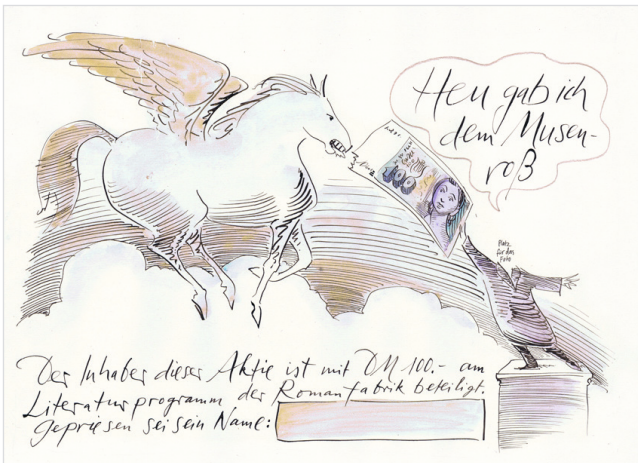 Heu gab ich
dem Musen-
roß
100
Platz
für den
Foto
Der Inhaber dieser Aktie ist mit DM 100.- am
Literaturprogramm der Romanfabrik beteiligt.
Gepriesen sei sein Name: